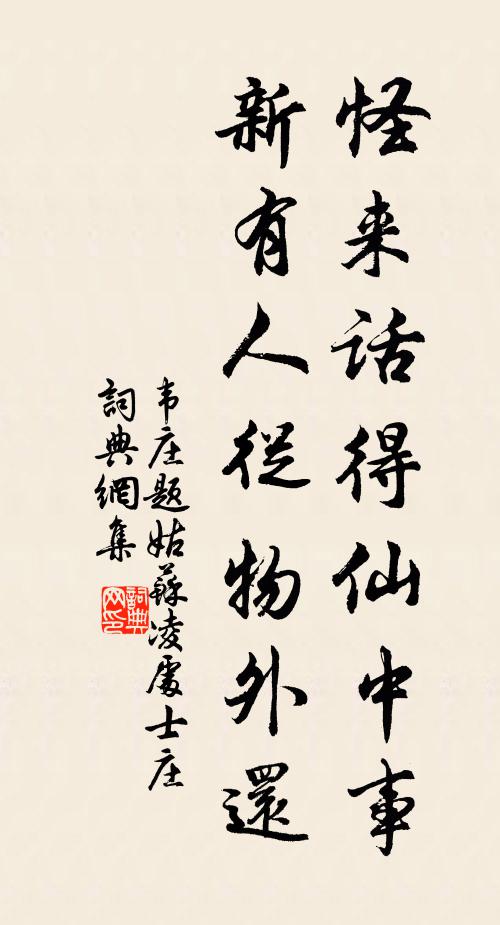 怪来话得仙中事
新有人從物外還
韦庄题姑蘇凌處士庄
詞典網集
詞典网印